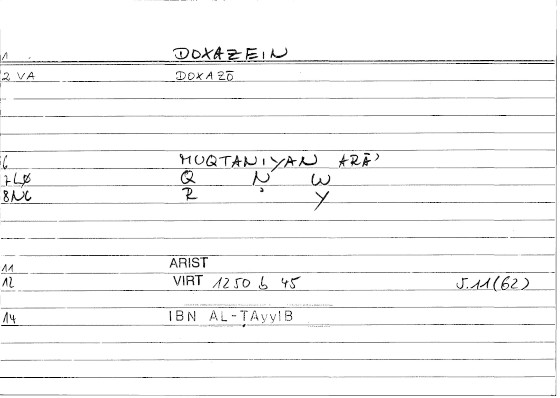 1 DOXAZEIN
2 VA DOXAZŌ
6 MUQTANIYAN ARĀʾ
7LØ Q N W
8NG R ʾ Y
11 ARIST
12 VIRT 1250 b 45 5.11(62)
14 IBN AL-ṬAyyIB